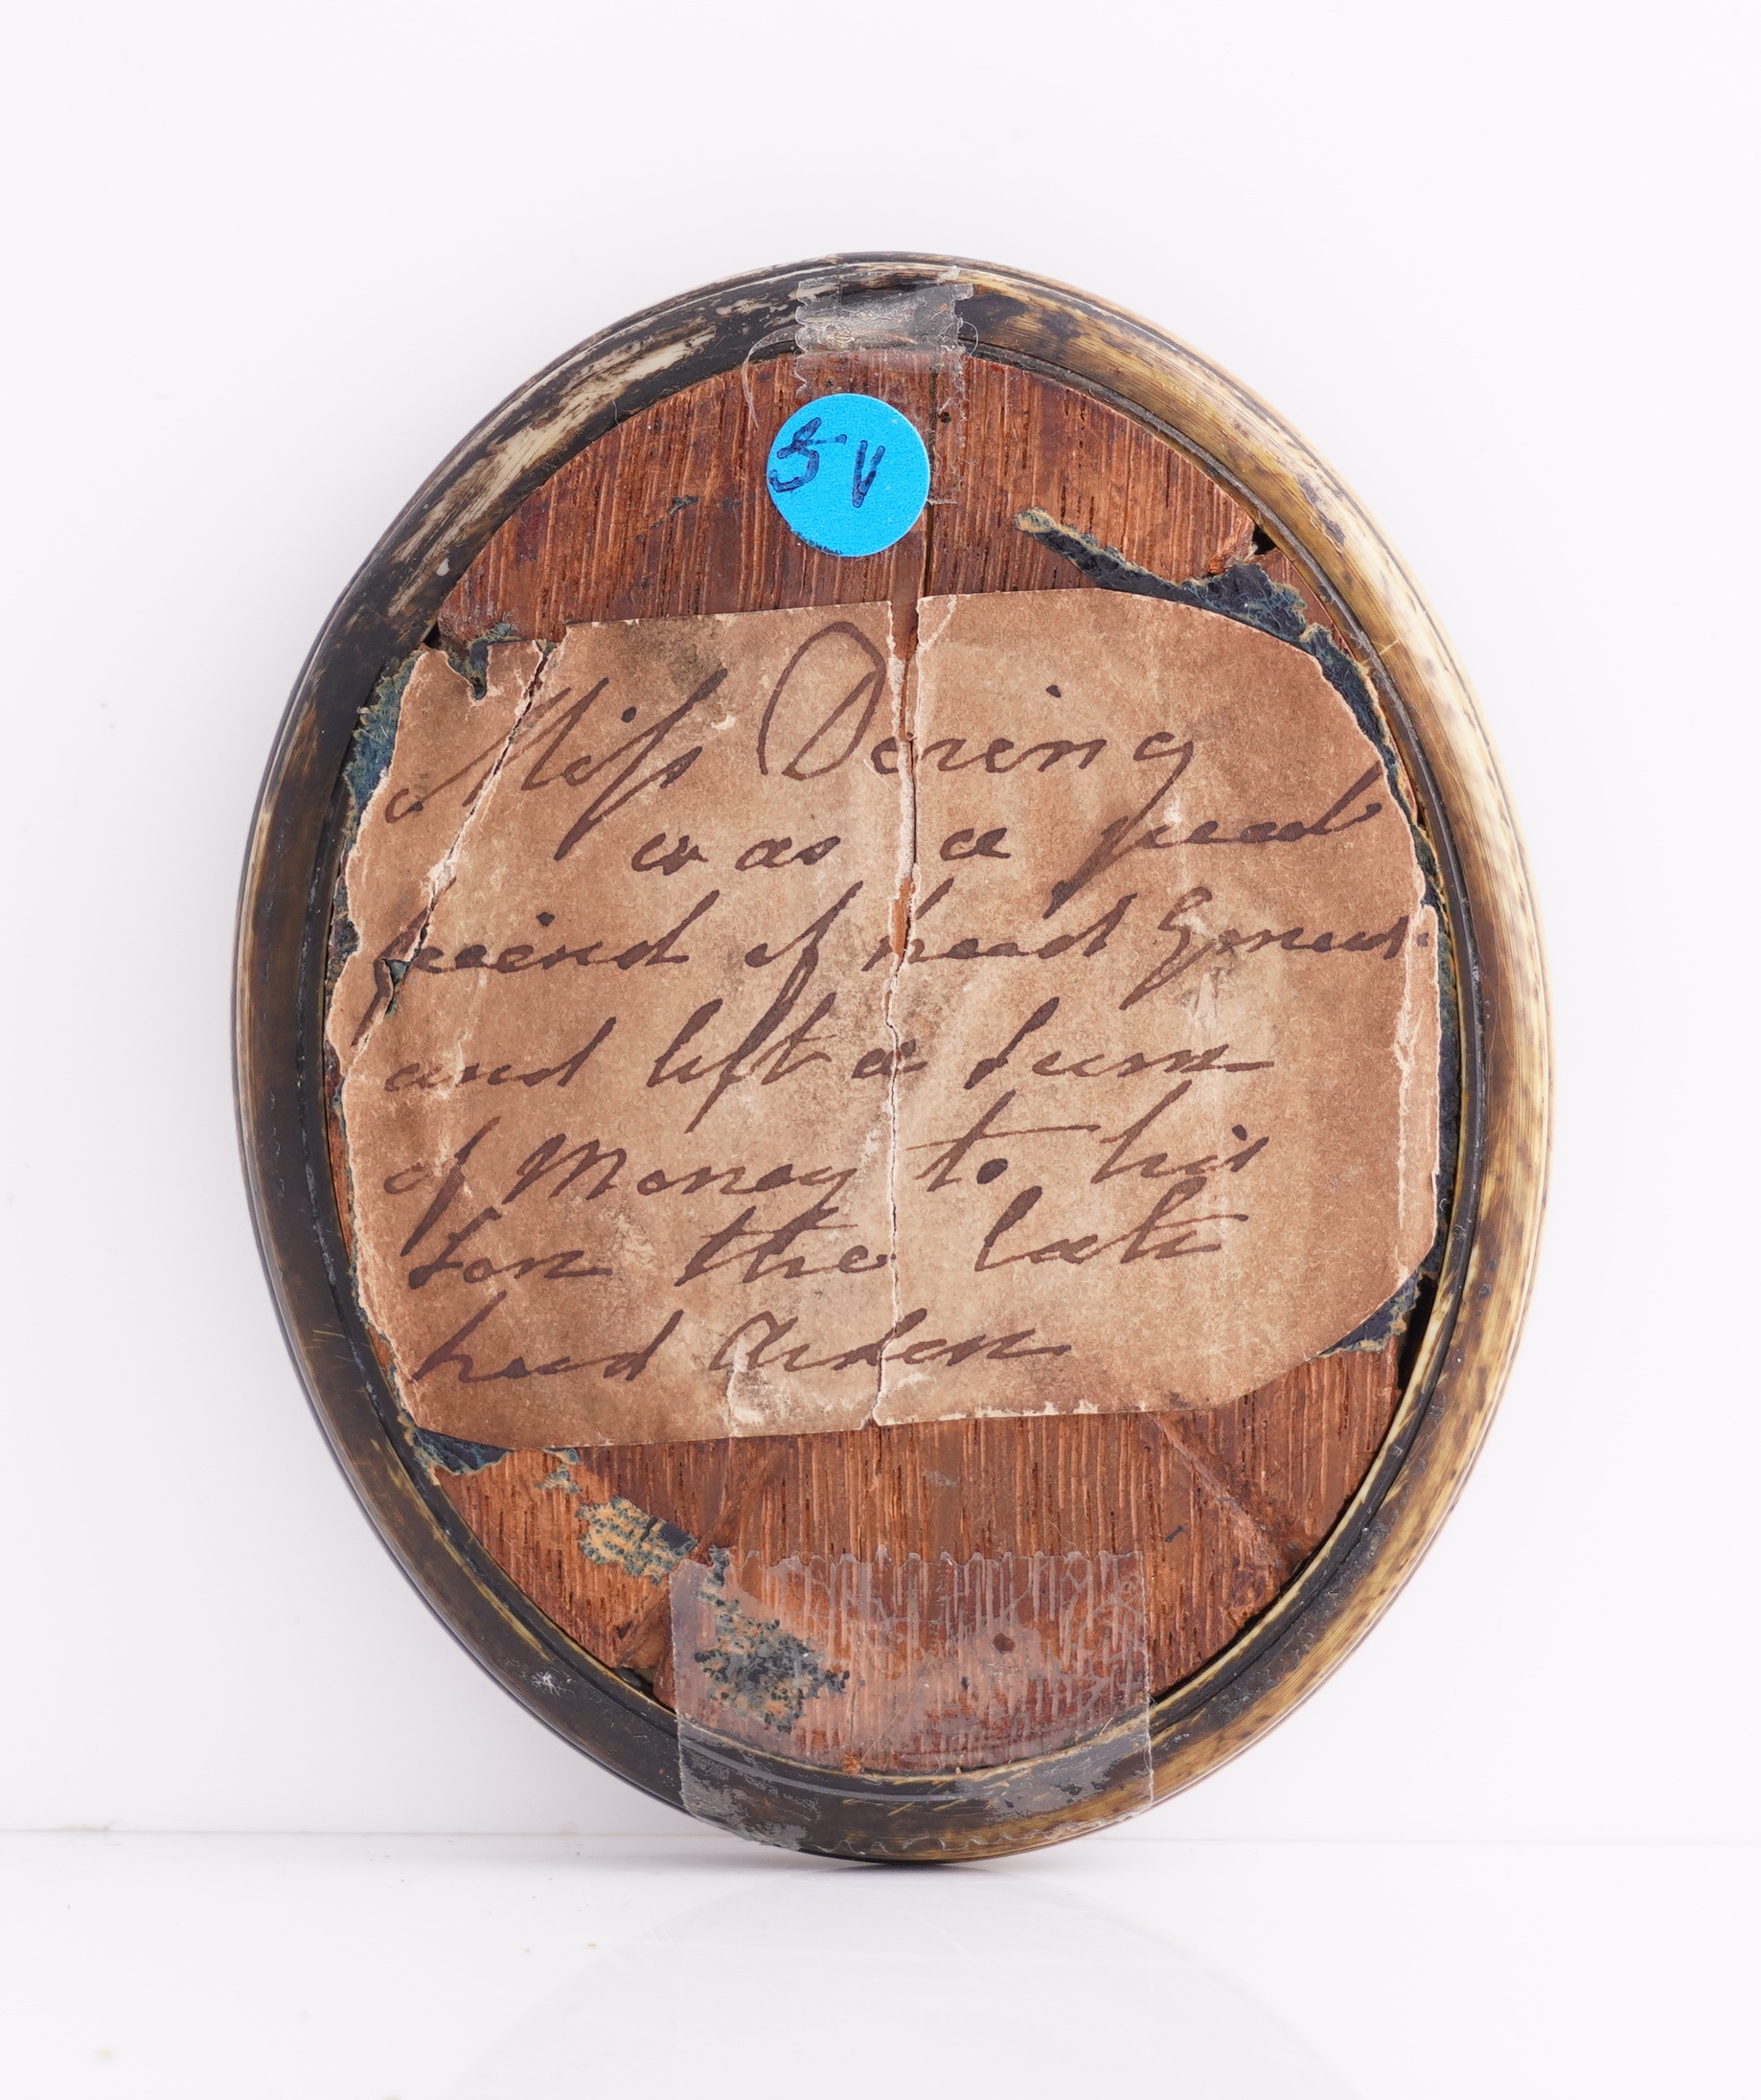 Miſs Dering
was a great
friend of Lord Egmont
and left a sum
of Money to his
Son the late
Lord Arden